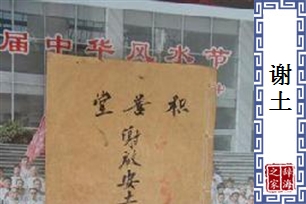 届中华风水节
积善堂
谢啟安土
谢土
辞海
之家